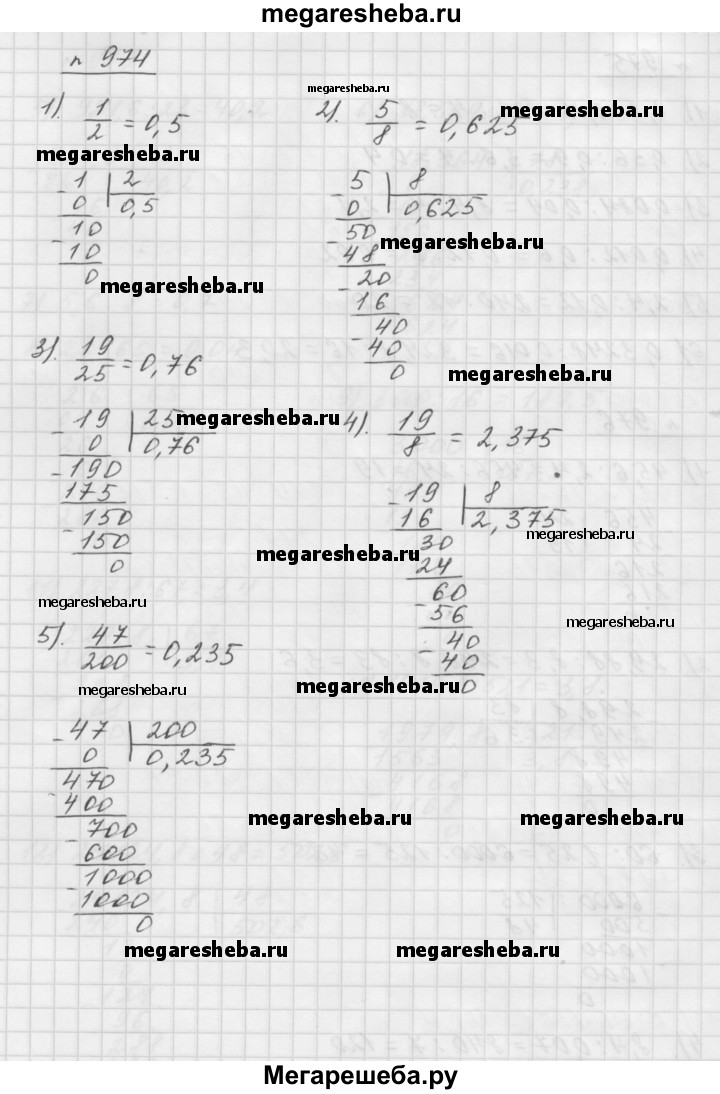 megaresheba.ru
n 974
megaresheba.ru
1). 1/2 = 0,5
2). 5/8 = 0,625
megaresheba.ru
megaresheba.ru
- 1 | 2
0 | 0,5
10
- 10
0
megaresheba.ru
- 5 | 8
0 | 0,625
- 50
48
- 20
16
- 40
40
0
megaresheba.ru
megaresheba.ru
3). 19/25 = 0,76
- 19 | 25
0 | 0,76
- 190
175
- 150
150
0
megaresheba.ru
4). 19/8 = 2,375
- 19 | 8
16 | 2,375
30
24
60
- 56
- 40
40
0
megaresheba.ru
megaresheba.ru
megaresheba.ru
megaresheba.ru
megaresheba.ru
5). 47/200 = 0,235
megaresheba.ru
- 47 | 200
0 | 0,235
- 470
400
- 700
600
- 1000
1000
0
megaresheba.ru
megaresheba.ru
megaresheba.ru
megaresheba.ru
Мегарешеба.ру